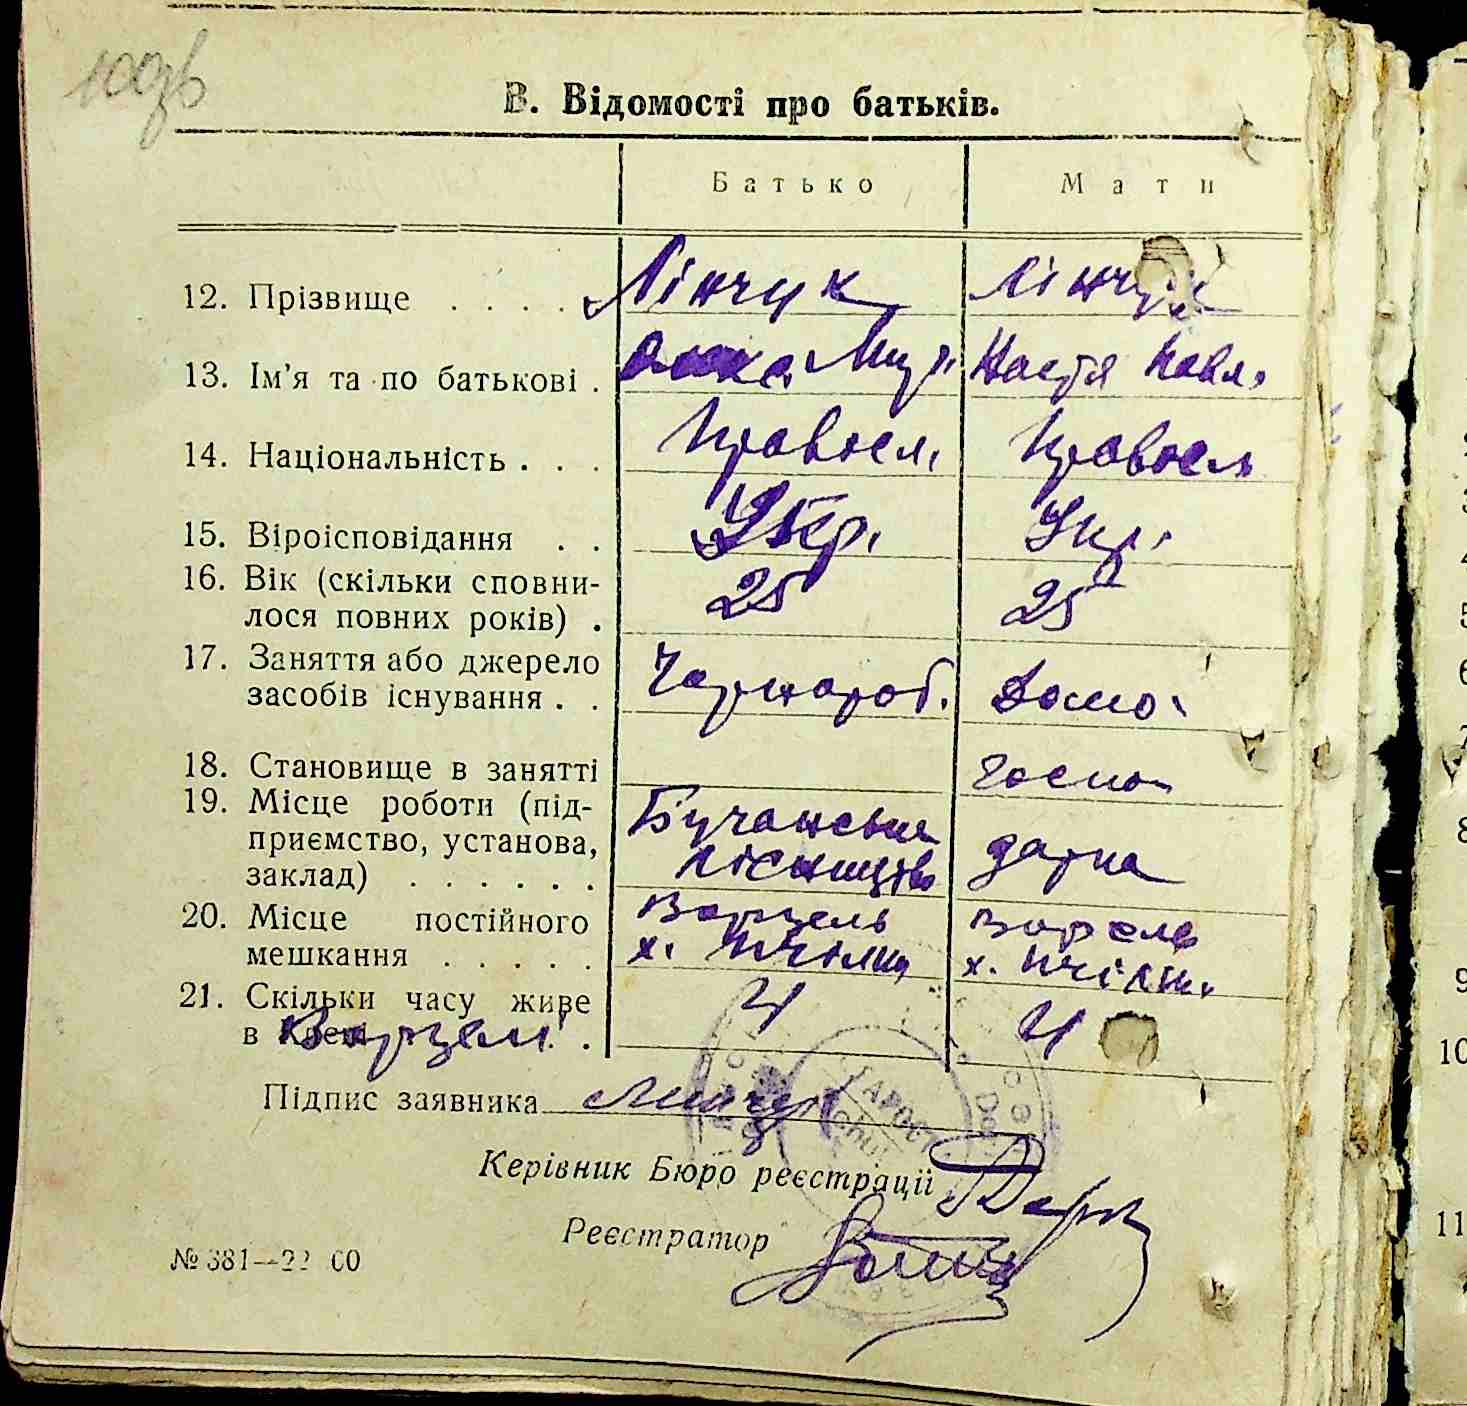 100зв
В. Відомості про батьків.
Батько Мати
12. Прізвище . . . . Лінчук Лінчук
13. Ім'я та по батькові . Настя Павл.
14. Національність . . . Правосл. Правосл.
15. Віроісповідання . . Укр. Укр.
16. Вік (скільки сповни-
лося повних років) . 25 25
17. Заняття або джерело
засобів існування . . Чорнороб. Домо-
18. Становище в занятті госпо-
19. Місце роботи (під- Бучанське
приємство, установа, лісництво дарка
заклад) . . . . . .
20. Місце постійного Ворзель Ворзель
мешкання . . . . . х. Пчілки х. Пчілки
21. Скільки часу живе 4 4
в Ворзелі .
Підпис заявника Линчук
Керівник Бюро реєстрації
Реєстратор
№ 381—22 60